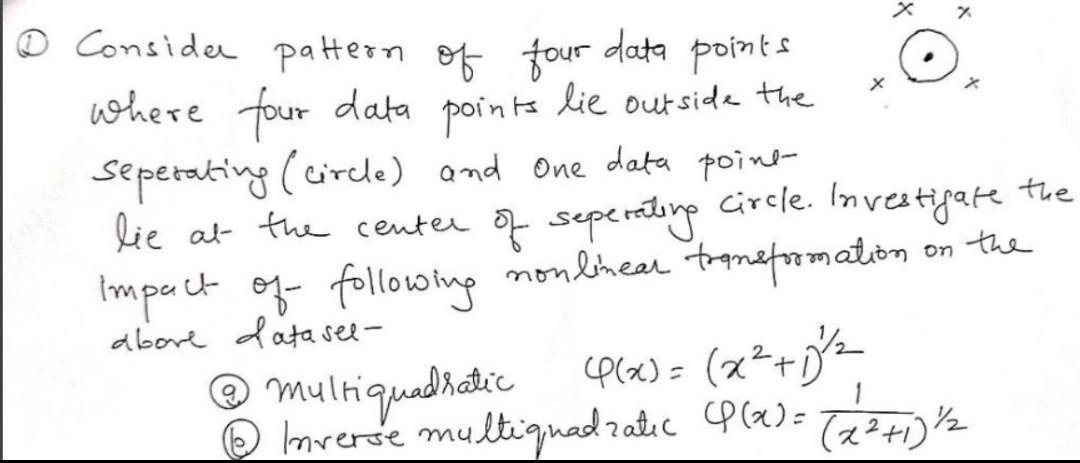 ① Consider pattern of four data points
where four data points lie outside the
seperating (circle) and one data point
lie at the center of seperating circle. Investigate the
impact of following nonlinear transformation on the
above dataset
ⓐ multiquadratic φ(x) = (x²+1)^1/2
ⓑ Inverse multiquadratic φ(x) = 1/(x²+1)^1/2